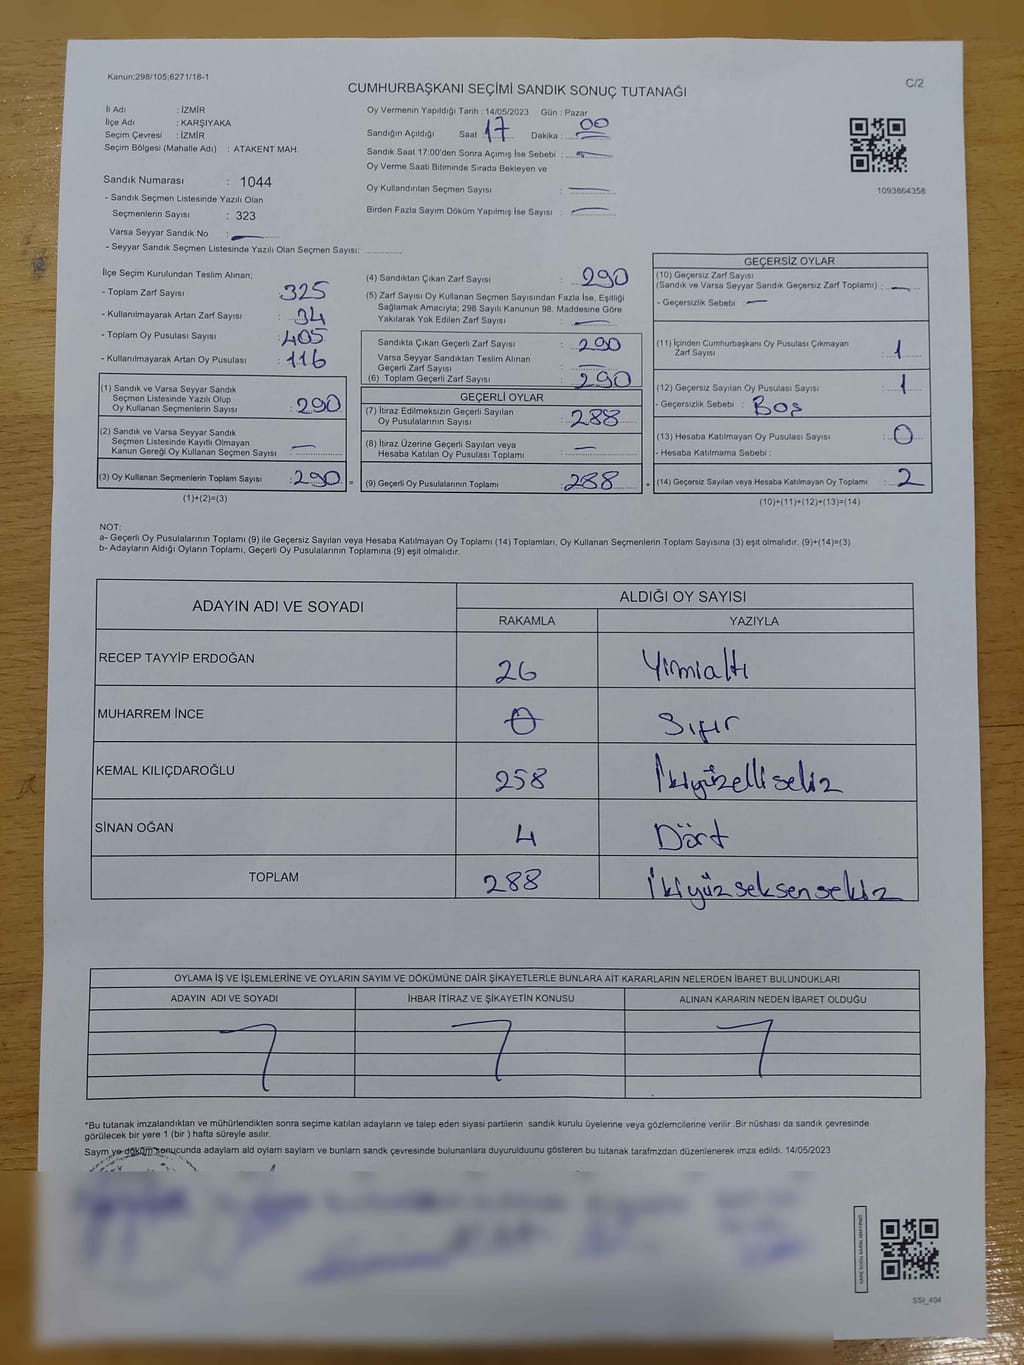 Kanun;298/105;6271/18-1
CUMHURBAŞKANI SEÇİMİ SANDIK SONUÇ TUTANAĞI
C/2
İl Adı : İZMİR
İlçe Adı : KARŞIYAKA
Seçim Çevresi : İZMİR
Seçim Bölgesi (Mahalle Adı) : ATAKENT MAH.
Sandık Numarası : 1044
- Sandık Seçmen Listesinde Yazılı Olan
Seçmenlerin Sayısı : 323
Varsa Seyyar Sandık No :
- Seyyar Sandık Seçmen Listesinde Yazılı Olan Seçmen Sayısı:
Oy Vermenin Yapıldığı Tarih : 14/05/2023 Gün : Pazar
Sandığın Açıldığı Saat 17 Dakika : 00
Sandık Saat 17:00'den Sonra Açımış İse Sebebi :
Oy Verme Saati Bitiminde Sırada Bekleyen ve
Oy Kullandırılan Seçmen Sayısı :
Birden Fazla Sayım Döküm Yapılmış İse Sayısı :
1093864358
İlçe Seçim Kurulundan Teslim Alınan;
- Toplam Zarf Sayısı : 325
- Kullanılmayarak Artan Zarf Sayısı : 34
- Toplam Oy Pusulası Sayısı : 405
- Kullanılmayarak Artan Oy Pusulası : 116
(1) Sandık ve Varsa Seyyar Sandık
Seçmen Listesinde Yazılı Olup
Oy Kullanan Seçmenlerin Sayısı : 290
(2) Sandık ve Varsa Seyyar Sandık
Seçmen Listesinde Kayıtlı Olmayan
Kanun Gereği Oy Kullanan Seçmen Sayısı :
(3) Oy Kullanan Seçmenlerin Toplam Sayısı : 290 =
(1)+(2)=(3)
(4) Sandıktan Çıkan Zarf Sayısı : 290
(5) Zarf Sayısı Oy Kullanan Seçmen Sayısından Fazla İse, Eşitliği
Sağlamak Amacıyla; 298 Sayılı Kanunun 98. Maddesine Göre
Yakılarak Yok Edilen Zarf Sayısı :
Sandıkta Çıkan Geçerli Zarf Sayısı : 290
Varsa Seyyar Sandıktan Teslim Alınan
Geçerli Zarf Sayısı :
(6) Toplam Geçerli Zarf Sayısı : 290
GEÇERLİ OYLAR
(7) İtiraz Edilmeksizin Geçerli Sayılan
Oy Pusulalarının Sayısı : 288
(8) İtiraz Üzerine Geçerli Sayılan veya
Hesaba Katılan Oy Pusulası Toplamı :
(9) Geçerli Oy Pusulalarının Toplamı : 288 +
GEÇERSİZ OYLAR
(10) Geçersiz Zarf Sayısı
(Sandık ve Varsa Seyyar Sandık Geçersiz Zarf Toplamı) :
- Geçersizlik Sebebi :
(11) İçinden Cumhurbaşkanı Oy Pusulası Çıkmayan
Zarf Sayısı : 1
(12) Geçersiz Sayılan Oy Pusulası Sayısı : 1
- Geçersizlik Sebebi : Boş
(13) Hesaba Katılmayan Oy Pusulası Sayısı : 0
- Hesaba Katılmama Sebebi :
(14) Geçersiz Sayılan veya Hesaba Katılmayan Oy Toplamı : 2
(10)+(11)+(12)+(13)=(14)
NOT:
a- Geçerli Oy Pusulalarının Toplamı (9) ile Geçersiz Sayılan veya Hesaba Katılmayan Oy Toplamı (14) Toplamları, Oy Kullanan Seçmenlerin Toplam Sayısına (3) eşit olmalıdır. (9)+(14)=(3)
b- Adayların Aldığı Oyların Toplamı, Geçerli Oy Pusulalarının Toplamına (9) eşit olmalıdır.
ADAYIN ADI VE SOYADI ALDIĞI OY SAYISI
RAKAMLA YAZIYLA
RECEP TAYYİP ERDOĞAN 26 Yirmialtı
MUHARREM İNCE 0 Sıfır
KEMAL KILIÇDAROĞLU 258 İkiyüzellisekiz
SİNAN OĞAN 4 Dört
TOPLAM 288 İkiyüzseksensekiz
OYLAMA İŞ VE İŞLEMLERİNE VE OYLARIN SAYIM VE DÖKÜMÜNE DAİR ŞİKAYETLERLE BUNLARA AİT KARARLARIN NELERDEN İBARET BULUNDUKLARI
ADAYIN ADI VE SOYADI İHBAR İTİRAZ VE ŞİKAYETİN KONUSU ALINAN KARARIN NEDEN İBARET OLDUĞU
*Bu tutanak imzalandıktan ve mühürlendikten sonra seçime katılan adayların ve talep eden siyasi partilerin sandık kurulu üyelerine veya gözlemcilerine verilir .Bir nüshası da sandık çevresinde
görülecek bir yere 1 (bir ) hafta süreyle asılır.
Saym ve döküm sonucunda adaylarn ald oylarn saylarn ve bunlarn sandk çevresinde bulunanlara duyurulduunu gösteren bu tutanak tarafmzdan düzenlenerek imza edildi. 14/05/2023
SSI_404